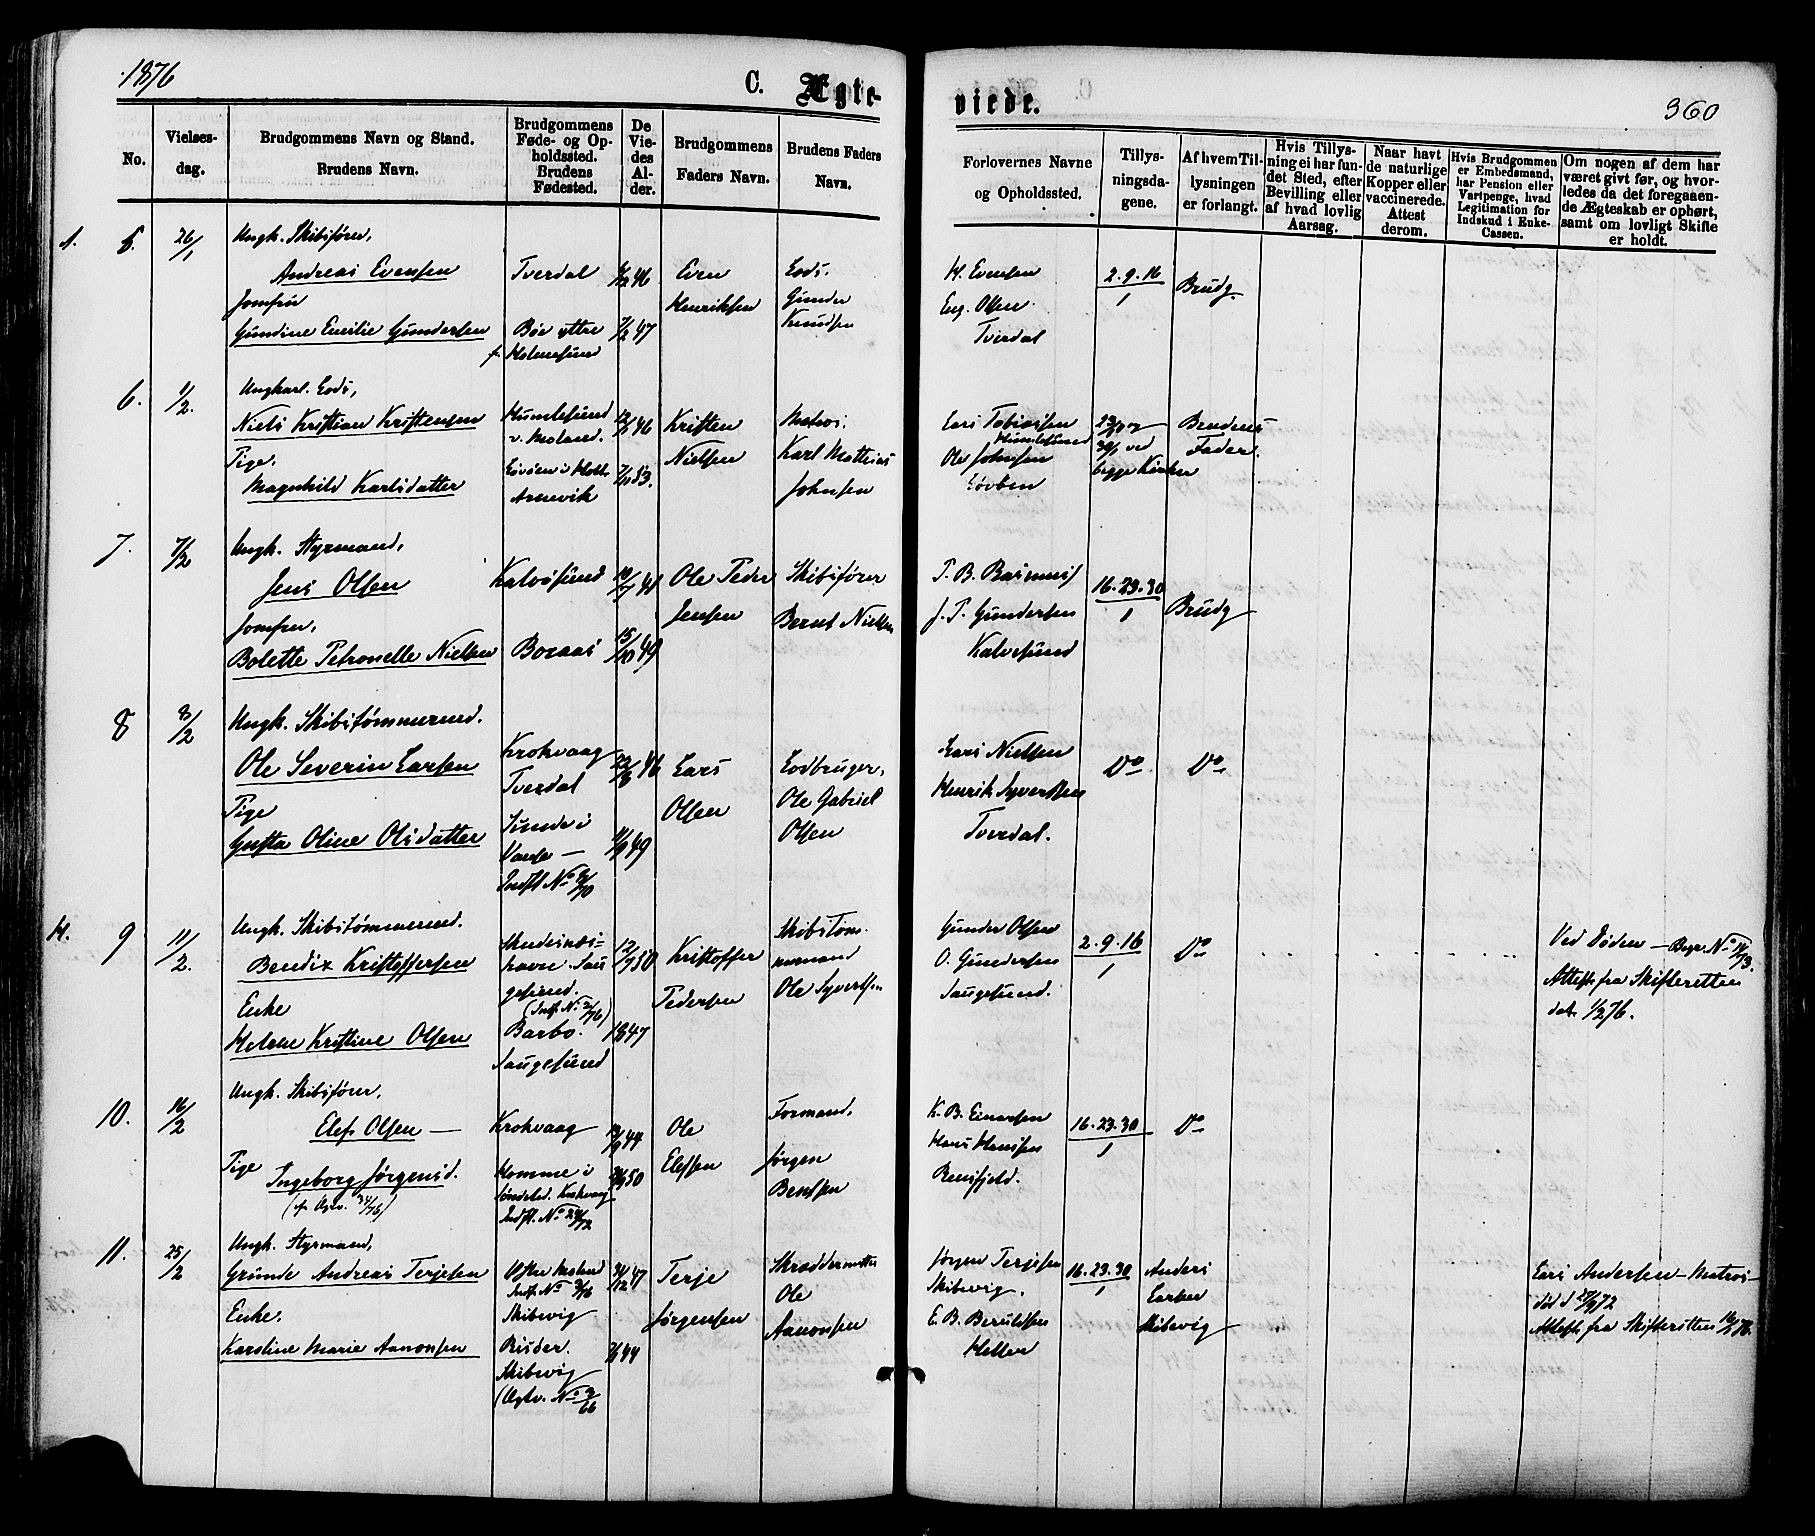 1876
C. Ægte-
viede.
360
No.
Vielses-
dag.
Brudgommens Navn og Stand.
Brudens Navn.
Brudgommens
Føde- og Op-
holdssted.
Brudens
Fødested.
De
Vie-
des
Al-
der.
Brudgommens
Faders Navn.
Brudens Faders
Navn.
Forlovernes Navne
og Opholdssted.
Tillys-
ningsda-
gene.
Af hvem Til-
lysningen
er forlangt.
Hvis Tillys-
ning ei har fun-
det Sted, efter
Bevilling eller
af hvad lovlig
Aarsag.
Naar havt
de naturlige
Kopper eller
vaccinerede.
Attest
derom.
Hvis Brudgommen
er Embedsmand,
har Pension eller
Vartpenge, hvad
Legitimation for
Indskud i Enke-
Cassen.
Om nogen af dem har
været givt før, og hvor-
ledes da det foregaaen-
de Ægteskab er ophørt,
samt om lovligt Skifte
er holdt.
5.
26/1
Ungk. Skibsfører,
Andreas Evensen
Jomfru
Gundine Emilie Gundersen
Tverdal
46
Bøe ytre
f. Holmesund
7/2 47
Even
Henriksen
Lods.
Gunder
Knudsen
H. Evensen
Eng. Olsen
Tverdal
2. 9. 16
1
Brudg.
6.
1/2.
Ungkarl. Lods,
Niels Kristian Kristensen
Pige.
Magnhild Karlsdatter
Humlesund
v. Moland.
46
Arnevik
53.
Kristen
Nielsen
Matros.
Karl Mathias
Johnsen
Lars Tobiassen
Humlesund
Ole Johnsen
Brudens
Fader.
begge Kirker
7.
7/2
Ungk. Styrmand,
Jens Olsen
Jomfru,
Bolette Petronelle Nielsen
Kalvøsund
Boraas
15/10 49
Ole Peder
Jensen
Skibsfører
Bernt Nielsen
J. P. Gundersen
Kalvesund
16. 23. 30
1
Brudg
8
8/2
Ungk. Skibstømmermd.
Ole Severin Larsen
Pige
Gusta Oline Olsdatter
Krokvaag
Tverdal
46
Sunde i
Vanse —
49
Lars
Olsen
Lodbruger,
Ole Gabriel
Olsen
Lars Nielsen
Henrik Syvertsen
Tverdal.
Do
Do
H.
9
11/2.
Ungk. Skibstømmermd.
Bendix Kristoffersen
Enke
Helene Kristine Olsen
Skudesnæs-
havn. Sau
gesund.
12/9 50
Barbo.
1847
Saugesund
Kristoffer
Pedersen
Skibstøm-
mermand
Ole Syvertsen
Gunder Olsen
O. Gundersen
Saugesund.
2. 9. 16
1
Do
Ved Døden — Begr. No 14/73.
Attest fra Skifteretten
dat. 1/2 76.
10.
16/2
Ungk. Skibsfører,
Elef Olsen —
Pige
Ingeborg Jørgensd.
Krokvaag
44
Homme i
50
Ole
Elefsen
Formand,
Jørgen
Bentsen
K. B. Einersen
Hans Hansen
Rensfjeld.
16. 23. 30
1
Do
11.
25/2
Ungk. Styrmand,
Grunde Andreas Terjesen
Enke.
Karoline Marie Aanonsen
47
Skibsvig
Risøer.
44
Skibsvig
(Ægtv. No 9/66
Terje
Jørgensen
Skræddermester
Ole
Aanonsen
Jørgen Terjesen
Skibsvig.
E. B. Berulfsen
Helles
16. 23. 30
1
Anders
Larsen
Skibsvig
Lars Andersen — Matros
død d. 27/9 72
Attest fra Skifteretten 16/2 76.